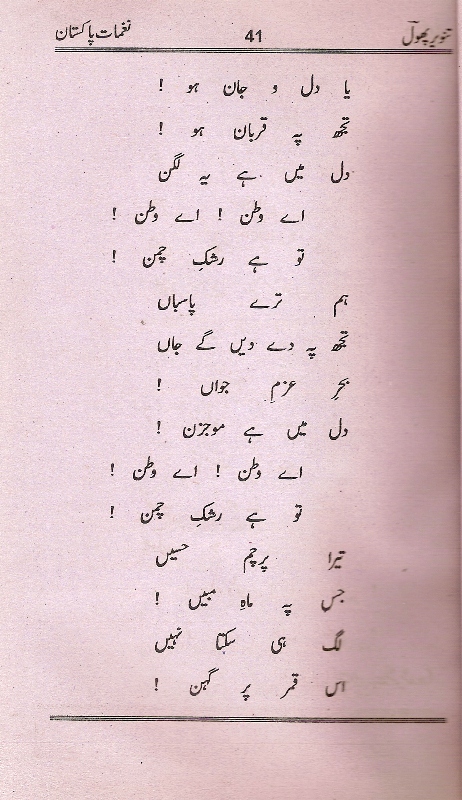 تنویر پھولؔ 41 نغمات پاکستان
یا دل و جان ہو !
تجھ پہ قربان ہو !
دل میں ہے یہ لگن
اے وطن ! اے وطن !
تو ہے رشکِ چمن !
ہم ترے پاسباں
تجھ پہ دے دیں گے جاں
بحرِ عزمِ جواں !
دل میں ہے موجزن !
اے وطن ! اے وطن !
تو ہے رشکِ چمن !
تیرا پرچم حسیں
جس پہ ماہِ مبیں !
لگ ہی سکتا نہیں
اس قمر پر گہن !